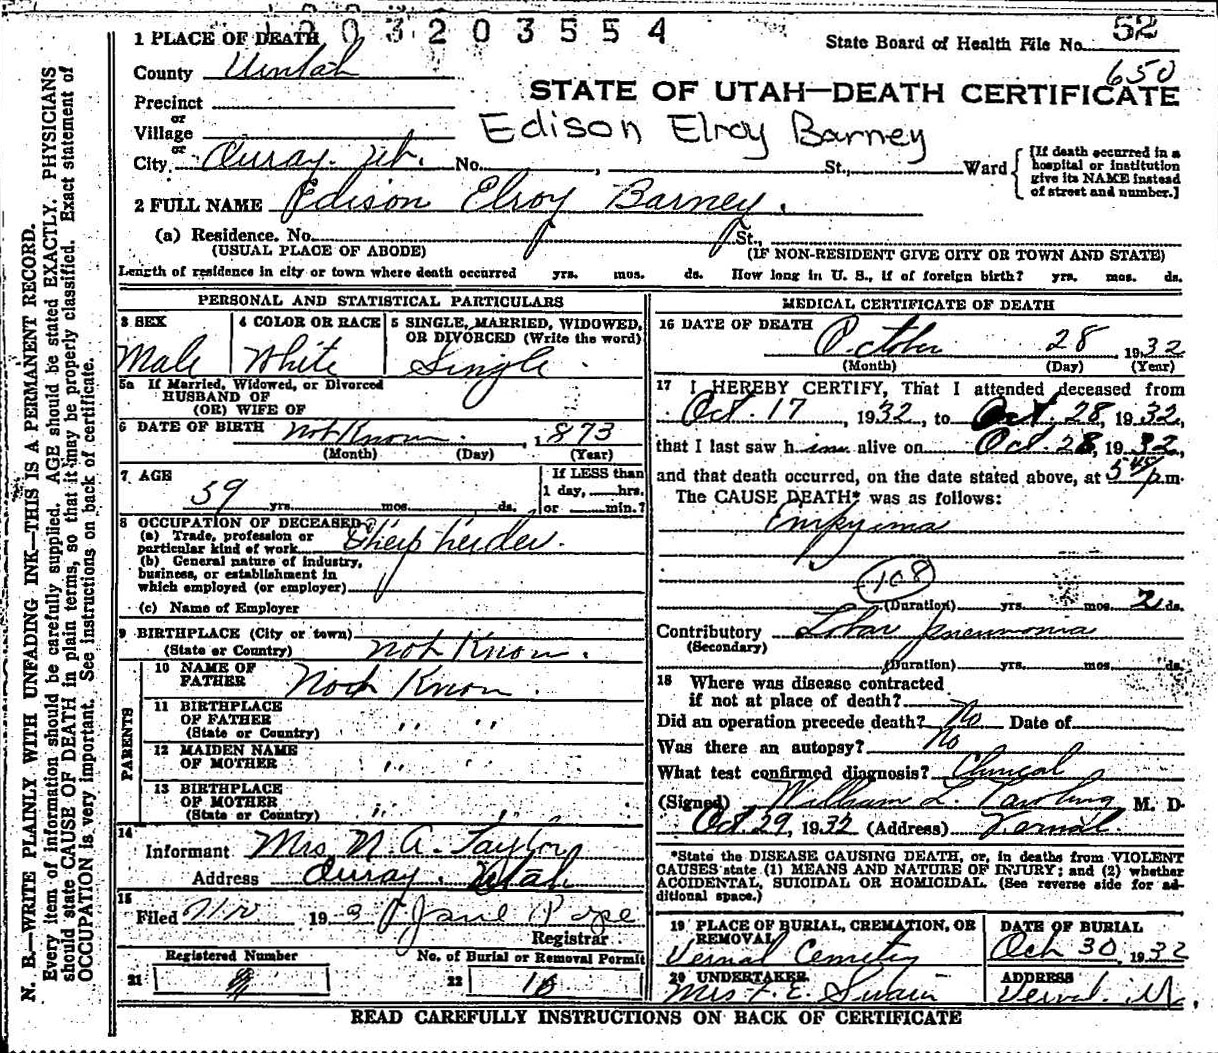 1 0 0 3 2 0 3 5 5 4
1 PLACE OF DEATH
State Board of Health File No. 52
County Uintah
650
STATE OF UTAH—DEATH CERTIFICATE
Precinct
or
Village
Edison Elroy Barney
or
City Ouray. Ut. No. , St., Ward
[If death occurred in a hospital or institution give its NAME instead of street and number.]
2 FULL NAME Edison Elroy Barney.
(a) Residence. No. St.,
(USUAL PLACE OF ABODE) (IF NON-RESIDENT GIVE CITY OR TOWN AND STATE)
Length of residence in city or town where death occurred yrs. mos. ds. How long in U. S., if of foreign birth? yrs. mos. ds.
PERSONAL AND STATISTICAL PARTICULARS
3 SEX Male
4 COLOR OR RACE White
5 SINGLE, MARRIED, WIDOWED, OR DIVORCED (Write the word) Single.
5a If Married, Widowed, or Divorced
HUSBAND OF
(OR) WIFE OF
6 DATE OF BIRTH not Know. , 1873
(Month) (Day) (Year)
7 AGE
59 yrs. mos. ds.
If LESS than
1 day, hrs.
or min.?
8 OCCUPATION OF DECEASED
(a) Trade, profession or
particular kind of work Sheep herder.
(b) General nature of industry,
business, or establishment in
which employed (or employer)
(c) Name of Employer
9 BIRTHPLACE (City or town)
(State or Country) not Know.
PARENTS
10 NAME OF
FATHER Not Know.
11 BIRTHPLACE
OF FATHER
(State or Country) " "
12 MAIDEN NAME
OF MOTHER " "
13 BIRTHPLACE
OF MOTHER
(State or Country) " "
14
Informant Mrs M. A. Taylor
Address Ouray, Utah
15
Filed 19 Jane Pope
Registrar
Registered Number
21
No. of Burial or Removal Permit
22
MEDICAL CERTIFICATE OF DEATH
16 DATE OF DEATH October 28 1932
(Month) (Day) (Year)
17 I HEREBY CERTIFY, That I attended deceased from
Oct. 17, 1932, to Oct. 28, 1932,
that I last saw him alive on Oct. 28, 1932,
and that death occurred, on the date stated above, at 5 45 p.m.
The CAUSE DEATH* was as follows:
Empyima
108
(Duration) yrs. mos. 2 ds.
Contributory Lobar pneumonia
(Secondary)
(Duration) yrs. mos. ds.
18 Where was disease contracted
if not at place of death?
Did an operation precede death? No Date of
Was there an autopsy? No
What test confirmed diagnosis? Clinical
(Signed) William L. M. D.
Oct 29, 1932 (Address) Vernal.
*State the DISEASE CAUSING DEATH, or, in deaths from VIOLENT
CAUSES state (1) MEANS AND NATURE OF INJURY; and (2) whether
ACCIDENTAL, SUICIDAL OR HOMICIDAL. (See reverse side for ad-
ditional space.)
19 PLACE OF BURIAL, CREMATION, OR
REMOVAL
Vernal Cemetery
DATE OF BURIAL
Oct 30, 1932
20 UNDERTAKER
Mrs F. E. Swain
ADDRESS
Vernal. Ut.
READ CAREFULLY INSTRUCTIONS ON BACK OF CERTIFICATE
N. B.—WRITE PLAINLY WITH UNFADING INK—THIS IS A PERMANENT RECORD.
Every item of information should be carefully supplied. AGE should be stated EXACTLY. PHYSICIANS
should state CAUSE OF DEATH in plain terms, so that it may be properly classified. Exact statement of
OCCUPATION is very important. See instructions on back of certificate.